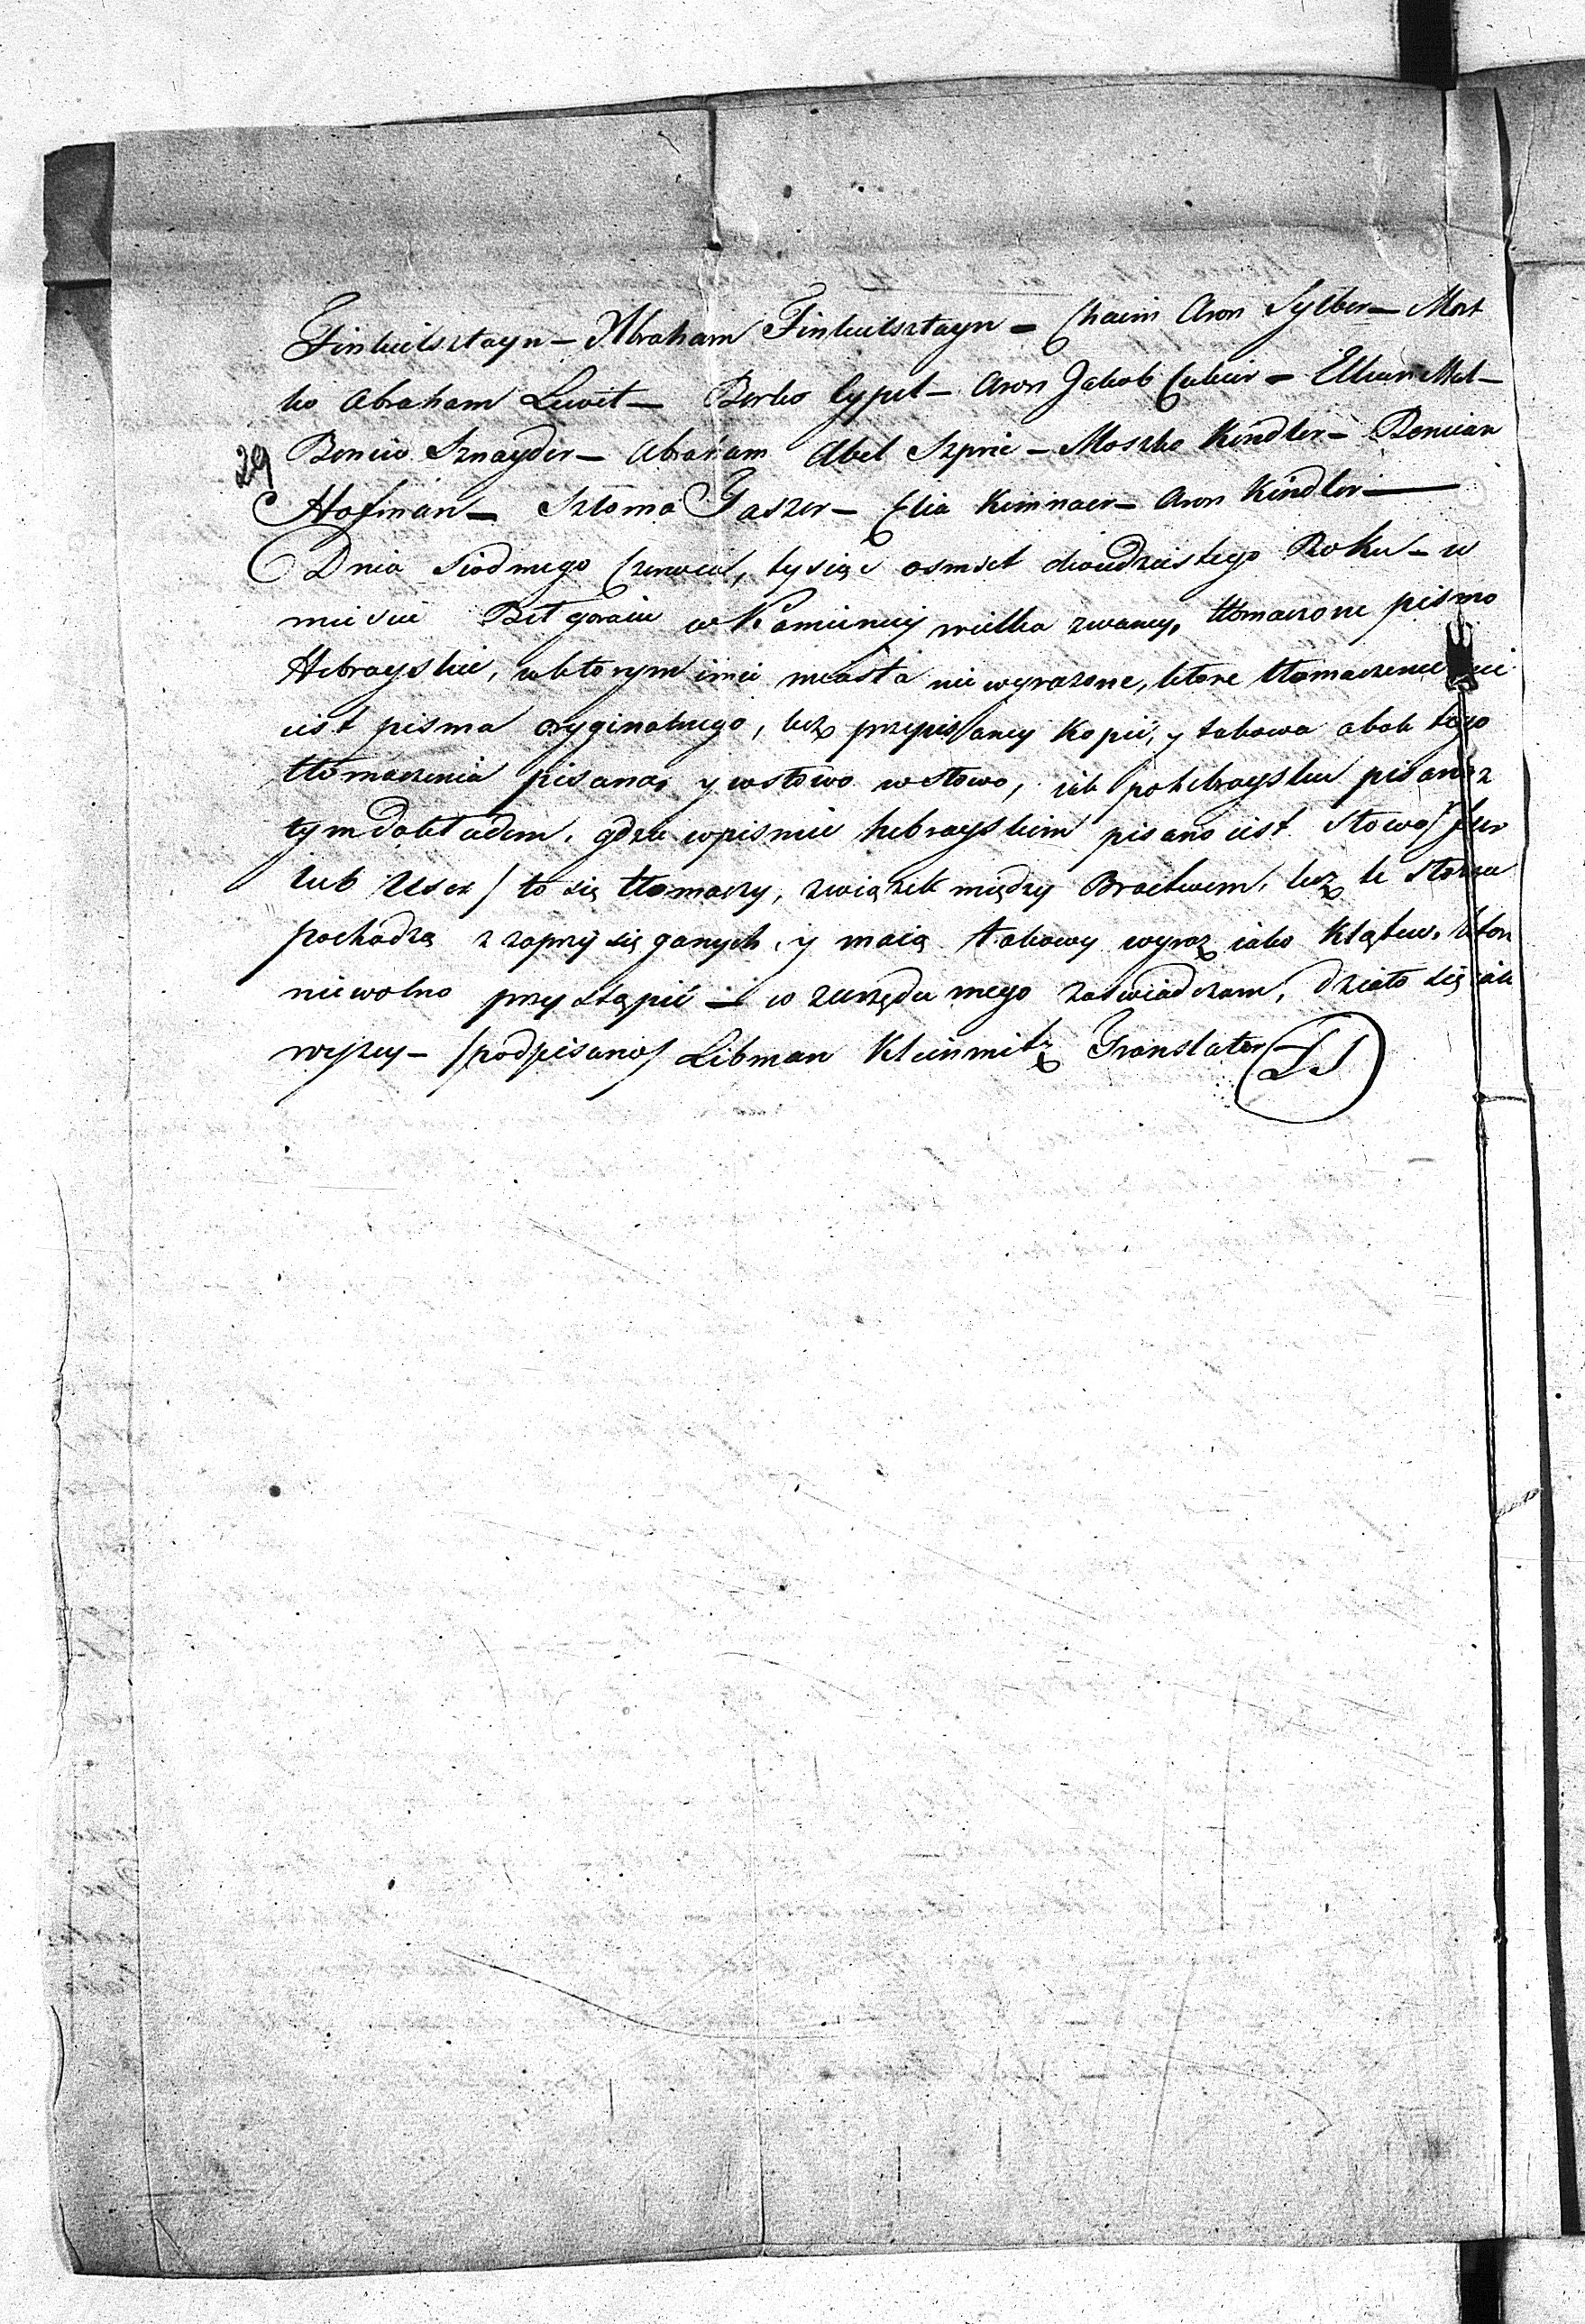 Finkielsztayn – Abraham Finkielsztayn – Chaim Aron Sylber – Mort
ko Abraham Lewit – Berko Cypel – Aron Jakob Cukier – Elkun Mel –
29
Benio Sznayder – Abraham Abel Szpric – Moszko Kindler – Beniean
Hofman – Szloma Jaszer – Elia Kiminaer – Aron Kindler –
Dnia Siodmego Czerwca, tysiąc osmset dwudziestego Roku – w
mieście Biłgoraiu w Kamienicy wielka zwaney, tłomaczone pismo
Hebrayskie, w którym imie miasta nie wyrażone, które tłomaczenie nie
iest pisma oryginalnego, lecz przepisaney Kopii, y takowa obok tego
tłomaczenia pisana, y w słowo w słowo, iak po hebraysku pisano z
tym dokładem, gdzie w pismie hebrayskim pisano iest Słowo /
lub User / to się tłomaczy, związek między Bractwem, lecz te Słowa
pochodzą z zaprzysięganych, y maią takowy wyraz iako Klątw,
nie wolno przystąpić – w z urzędu mego zaświadczam, działo się iak
wyzey – /podpisano/ Libman Kleinmitz Translator (LS)